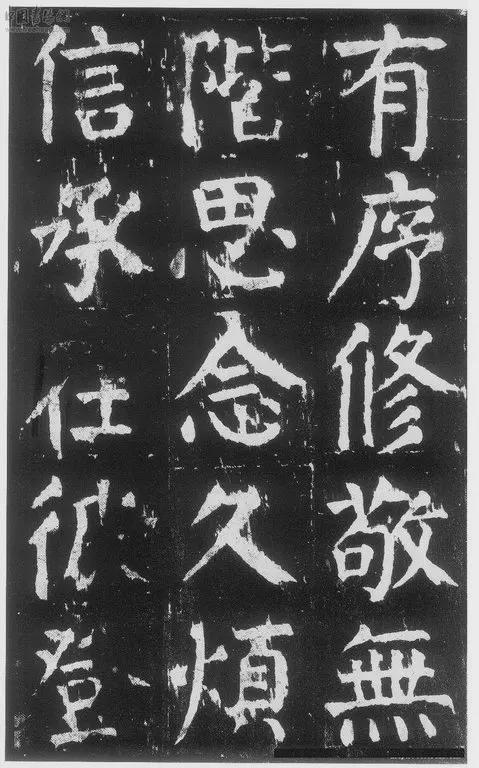 有序修敬無
階思念久煩
信承仕從登